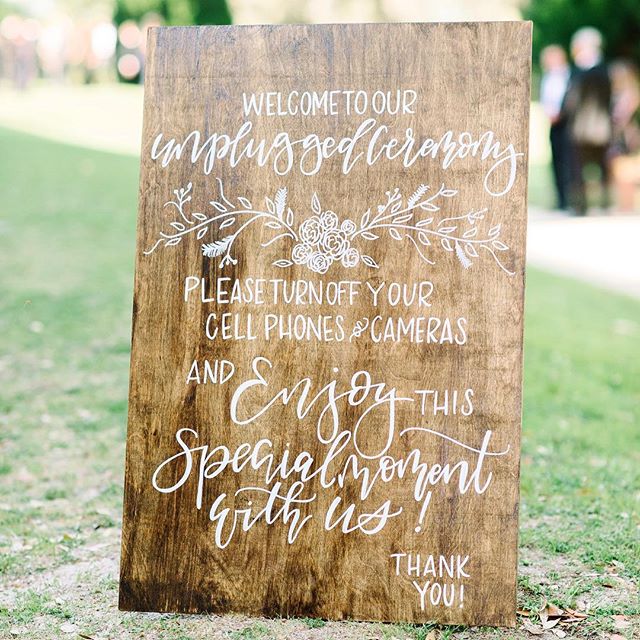 WELCOME TO OUR
unplugged Ceremony
PLEASE TURN OFF YOUR
CELL PHONES & CAMERAS
AND Enjoy THIS
Special moment
with us!
THANK
YOU!